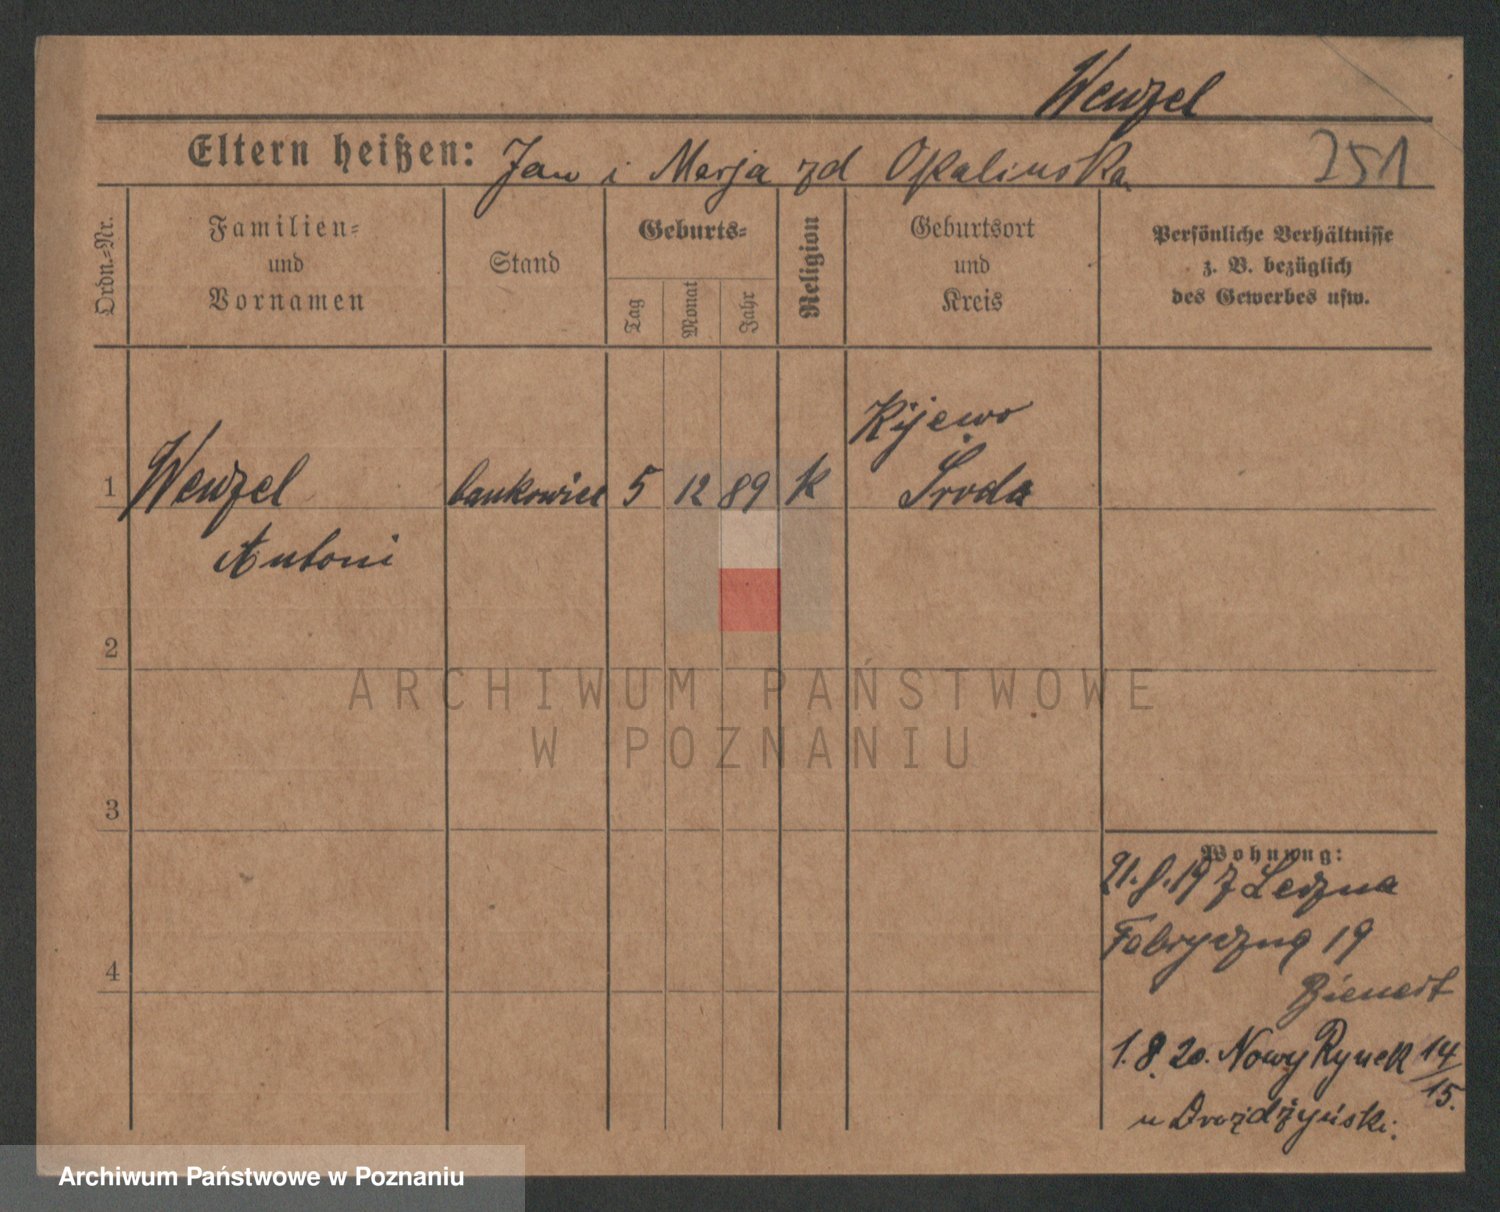 Wenzel
Eltern heißen: Jan i Marja zd Opalinska
251
Ordn.=Nr.
Familien=
und
Vornamen
Stand
Geburts=
Tag
Monat
Jahr
Religion
Geburtsort
und
Kreis
Persönliche Verhältnisse
z. B. bezüglich
des Gewerbes usw.
Kijewo
1 Wenzel bankowiec 5 12 89 k Środa
Antoni
2
ARCHIWUM PAŃSTWOWE
W POZNANIU
3
Wohnung:
21. 8. 19 z Leszna
Fabryczna 19
Bienert
4
1. 8. 20. Nowy Rynek 14/15.
u Drożdżyński.
Archiwum Państwowe w Poznaniu